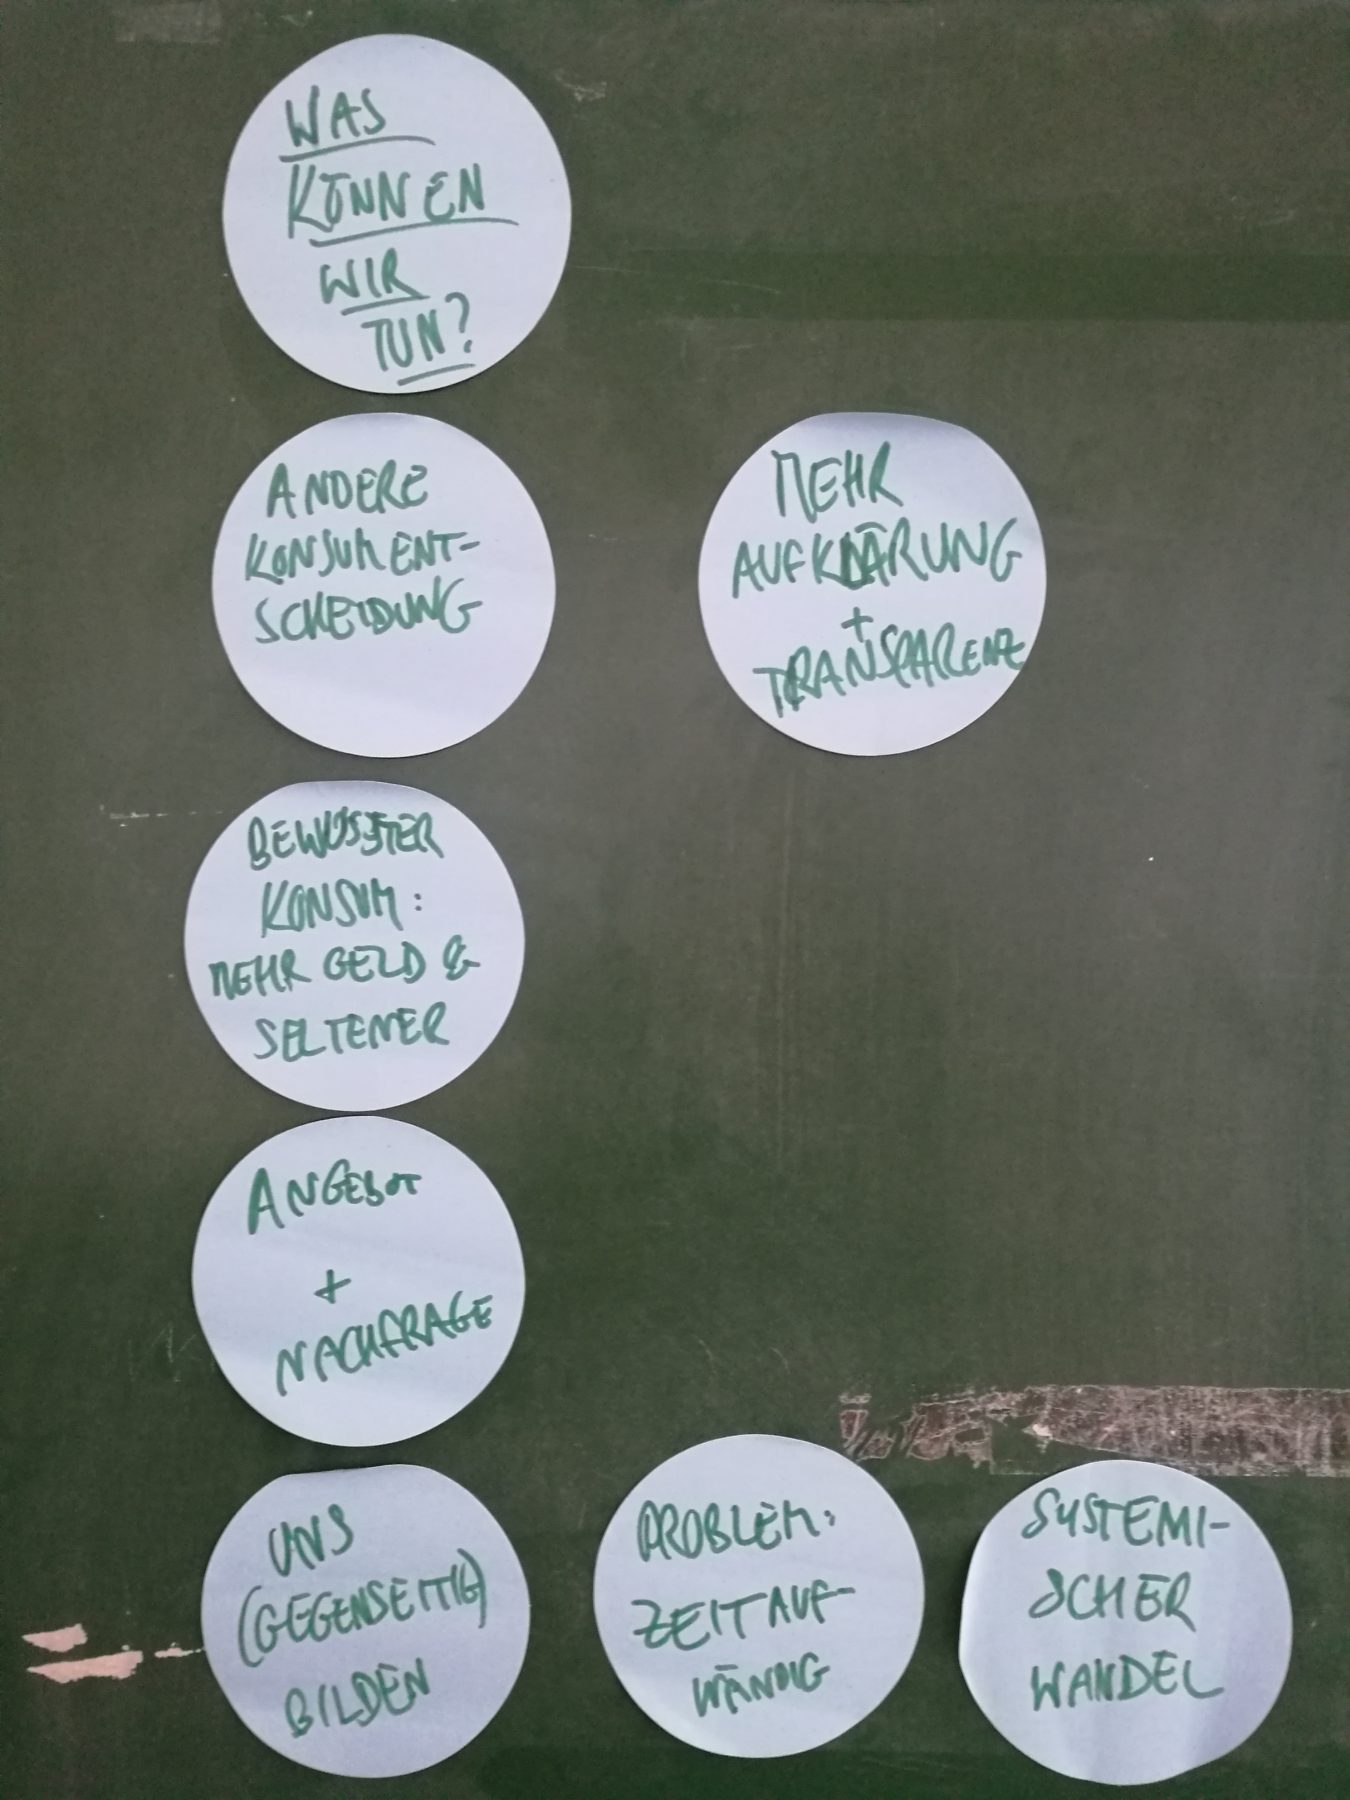 WAS
KÖNNEN
WIR
TUN?
ANDERE
KONSUMENT-
SCHEIDUNG
MEHR
AUFKLÄRUNG
+
TRANSPARENZ
BEWUSSTER
KONSUM:
MEHR GELD &
SELTENER
ANGEBOT
+
NACHFRAGE
UNS
(GEGENSEITIG)
BILDEN
PROBLEM:
ZEITAUF-
WÄNDIG
SYSTEMI-
SCHER
WANDEL